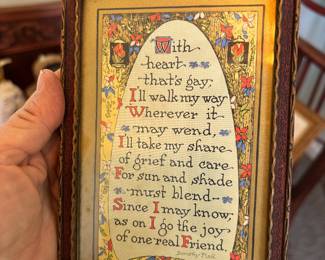 With
heart
that's gay,
I'll walk my way
Wherever it
may wend,
I'll take my share
of grief and care
For sun and shade
must blend
Since I may know,
as on I go the joy
of one real Friend.
Dorothy